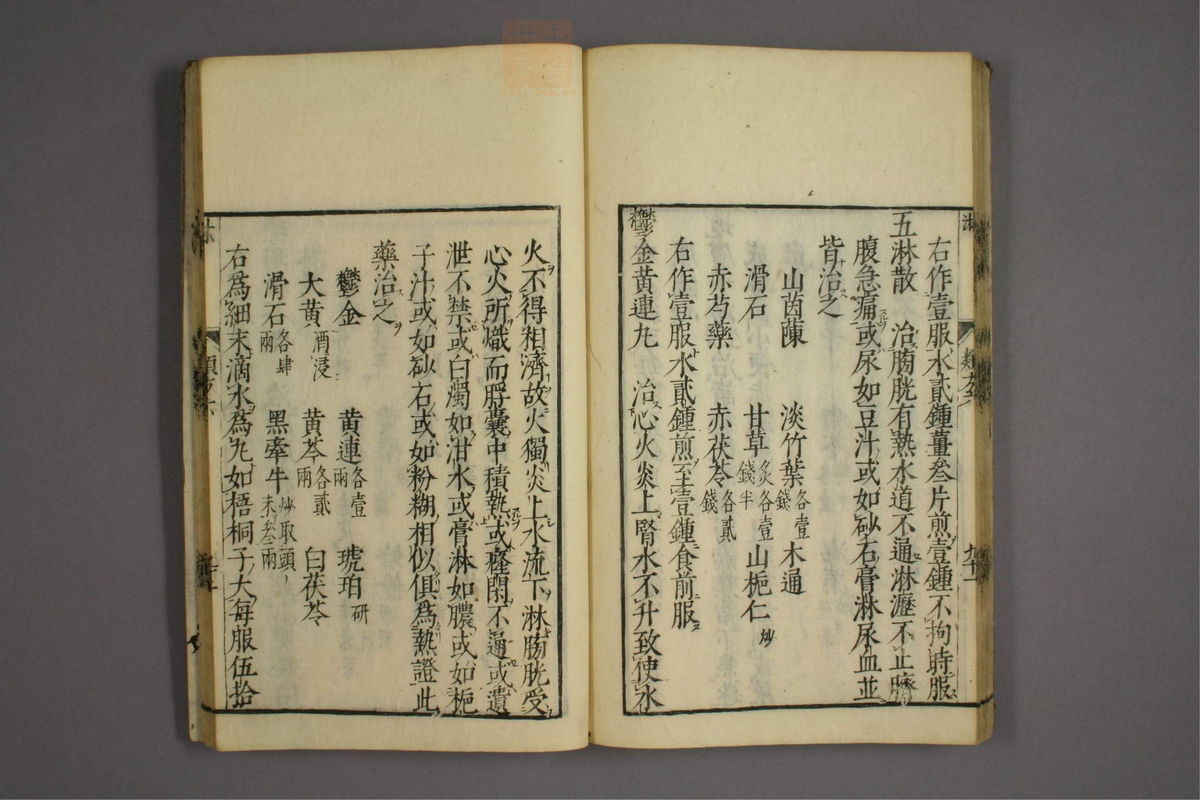 右作壹服水貳鍾薑叁片煎壹鍾不拘時服
五淋散 治膀胱有熱水道不通淋瀝不止臍
腹急痛或尿如豆汁或如砂石膏淋尿血並
皆治之
山茵蔯 淡竹葉各壹錢 木通
滑石 甘草炙各壹錢半 山梔仁炒
赤芍藥 赤茯苓各貳錢
右作壹服水貳鍾煎至壹鍾食前服
鬱金黃連丸 治心火炎上腎水不升致使水
火不得相濟故火獨炎上水流下淋膀胱受
心火所熾而脬囊中積熱或癃閉不通或遺
泄不禁或白濁如泔水或膏淋如膿或如梔
子汁或如砂石或如粉糊相似俱為熱證此
藥治之
鬱金 黃連各壹兩 琥珀研
大黃酒浸 黃芩各貳兩 白茯苓
滑石各肆兩 黑牽牛炒取頭末叁兩
右爲細末滴水爲丸如梧桐子大每服伍拾